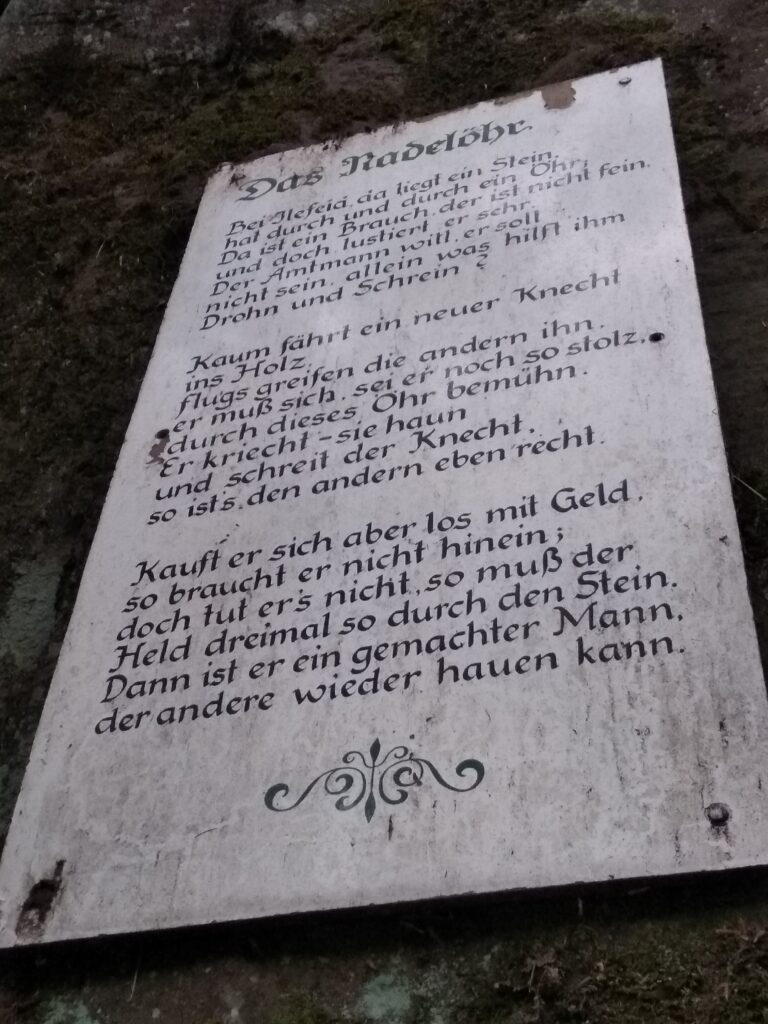 Das Nadelöhr
Bei Ilefeld, da liegt ein Stein,
hat durch und durch ein Öhr;
Da ist ein Brauch, der ist nicht fein,
und doch lustiert er sehr.
Der Amtmann will, er soll
nicht sein, allein was hilft ihm
Drohn und Schrein?
Kaum fährt ein neuer Knecht
ins Holz,
flugs greifen die andern ihn.
er muß sich, sei er noch so stolz,
durch dieses Öhr bemühn.
Er kriecht - sie haun
und schreit der Knecht,
so ist's den andern eben recht.
Kauft er sich aber los mit Geld,
so braucht er nicht hinein;
doch tut er's nicht, so muß der
Held dreimal so durch den Stein.
Dann ist er ein gemachter Mann,
der andere wieder hauen kann.